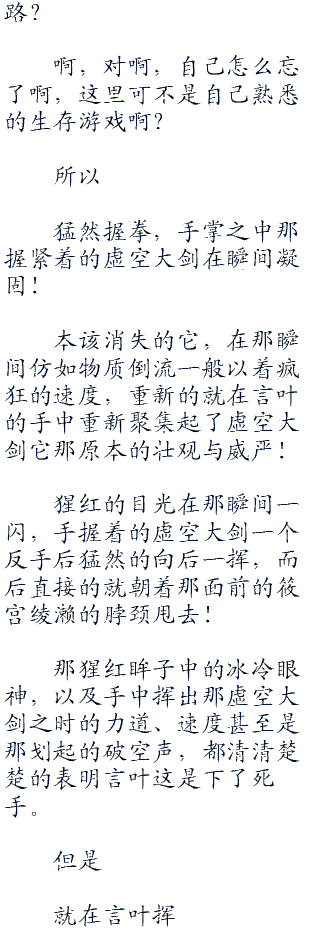 路？
啊，对啊，自己怎么忘
了啊，这里可不是自己熟悉
的生存游戏啊？
所以
猛然握拳，手掌之中那
握紧着的虚空大剑在瞬间凝
固！
本该消失的它，在那瞬
间仿如物质倒流一般以着疯
狂的速度，重新的就在言叶
的手中重新聚集起了虚空大
剑它那原本的壮观与威严！
猩红的目光在那瞬间一
闪，手握着的虚空大剑一个
反手后猛然的向后一挥，而
后直接的就朝着那面前的筱
宫绫濑的脖颈甩去！
那猩红眸子中的冰冷眼
神，以及手中挥出那虚空大
剑之时的力道、速度甚至是
那划起的破空声，都清清楚
楚的表明言叶这是下了死
手。
但是
就在言叶挥